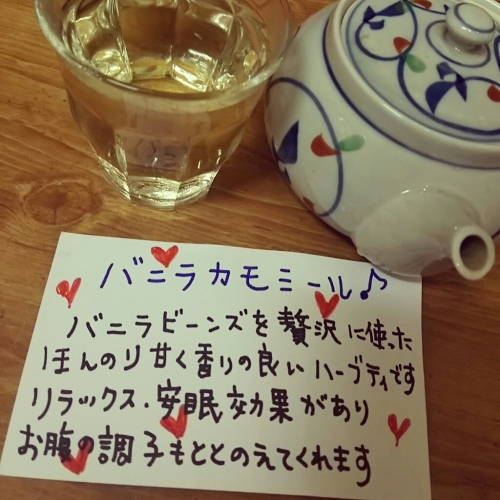 バニラカモミール♪
バニラビーンズを贅沢に使った
ほんのり甘く香りの良いハーブティです
リラックス・安眠効果があり
お腹の調子もととのえてくれます